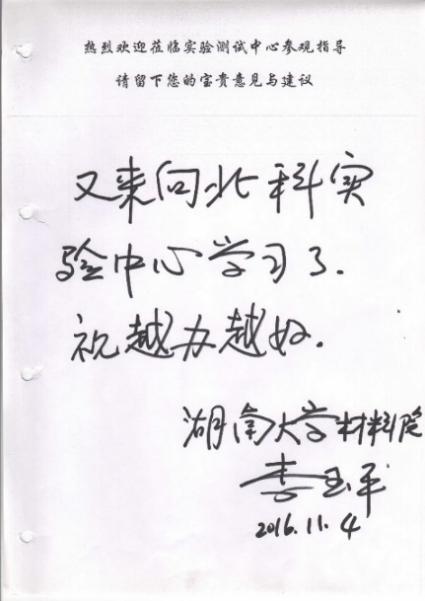 热烈欢迎莅临实验测试中心参观指导
请留下您的宝贵意见与建议
又来向北科实
验中心学习了.
祝越办越好.
湖南大学材料院
李玉平
2016.11.4